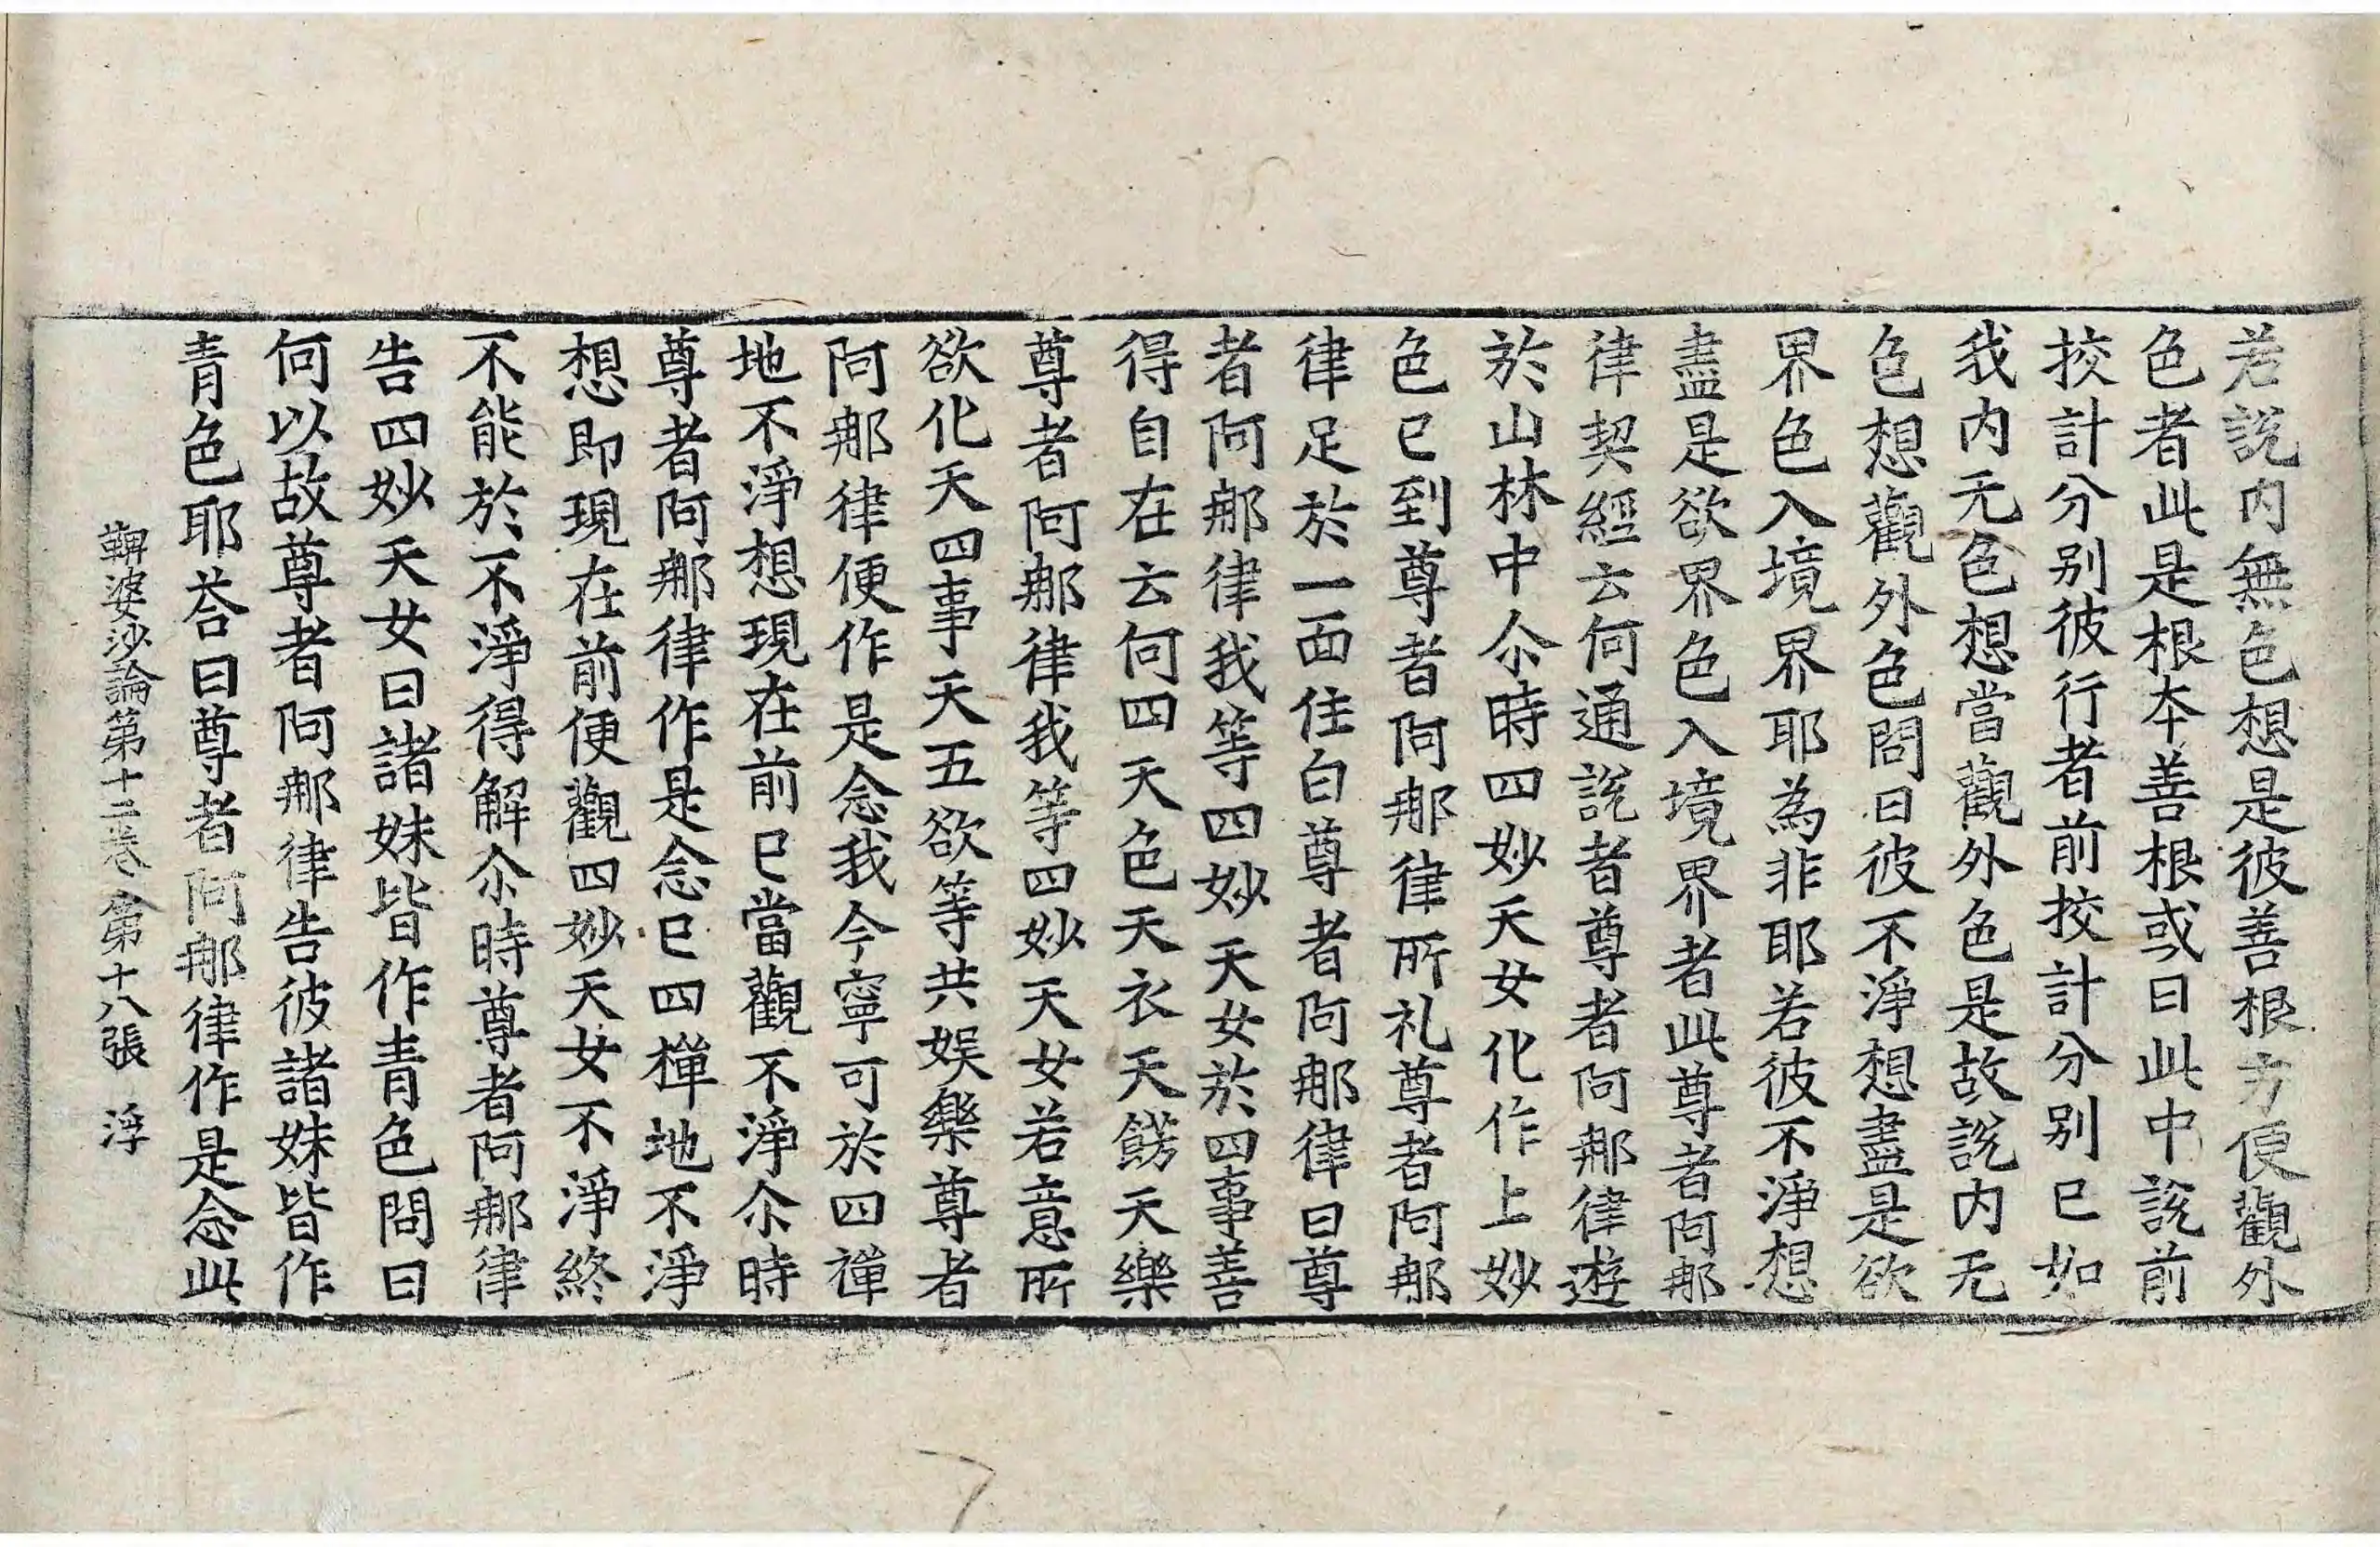 若說内無色想是彼善根方便觀外
色者此是根夲善根或曰此中說前
挍計分别彼行者前挍計分别已如
我内无色想當觀外色是故說内无
色想觀外色問曰彼不淨想盡是欲
界色入境界耶為非耶若彼不淨想
盡是欲界色入境界者此尊者阿那
律契經云何通說者尊者阿那律遊
於山林中尒時四妙天女化作上妙
色已到尊者阿那律所礼尊者阿那
律足於一面住白尊者阿那律曰尊
者阿那律我等四妙天女於四事善
得自在云何四天色天衣天餝天樂
尊者阿那律我等四妙天女若意所
欲化天四事天五欲等共娱樂尊者
阿那律便作是念我今寧可於四禪
地不淨想現在前已當觀不淨尒時
尊者阿那律作是念已四禪地不淨
想即現在前便觀四妙天女不淨終
不能於不淨得解尒時尊者阿那律
告四妙天女曰諸妹皆作青色問曰
何以故尊者阿那律告彼諸妹皆作
青色耶荅曰尊者阿那律作是念此
鞞婆沙論第十二卷 第十八張 浮